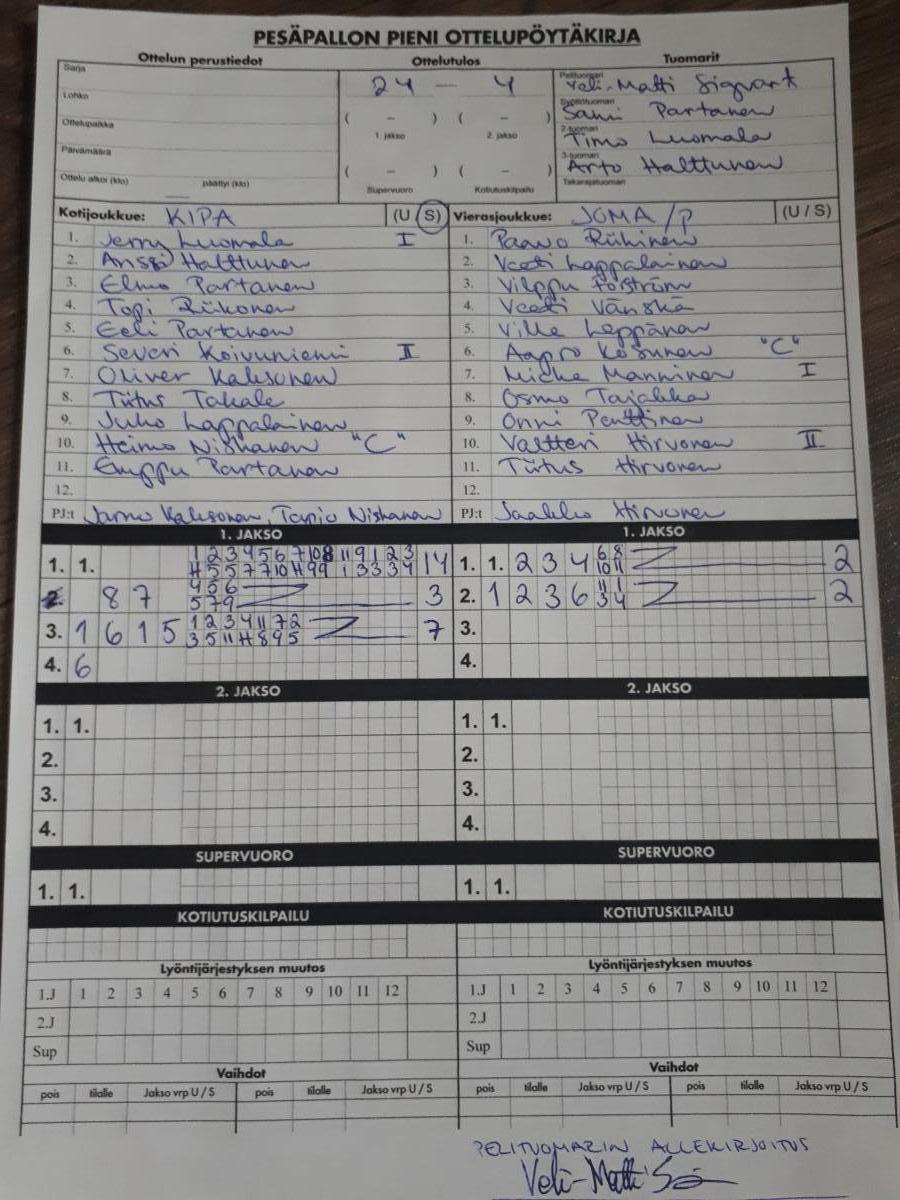 PESÄPALLON PIENI OTTELUPÖYTÄKIRJA
Ottelun perustiedot Ottelutulos Tuomarit
Sarja
Lohko
Ottelupaikka
Päivämäärä
Ottelu alkoi (klo) päättyi (klo)
24 — 4
( – ) ( – )
1. jakso 2. jakso
( – ) ( – )
Supervuoro Kotiutuskilpailu
Pelituomari Veli-Matti Sigvart
Syöttötuomari Sami Partanen
2-tuomari Timo Luomala
3-tuomari Arto Halttunen
Takarajatuomari
Kotijoukkue: KIPA (U / S)
1. Jerry Luomala I
2. Anssi Halttunen
3. Elmo Partanen
4. Topi Riikonen
5. Eeli Partanen
6. Severi Koivuniemi II
7. Oliver Kaksonen
8. Tiitus Takale
9. Juho Lappalainen
10. Heimo Niskanen "C"
11. Emppu Partanen
12.
PJ:t Jarno Kaksonen, Tarjo Niskanen
Vierasjoukkue: JOMA/P (U / S)
1. Paavo Riikinen
2. Veeti Lappalainen
3. Vilppu Forström
4. Veeti Vänskä
5. Ville Leppänen
6. Aapro Kosunen "C"
7. Micke Manninen I
8. Osmo Tajakka
9. Onni Penttinen
10. Valtteri Hirvonen II
11. Tiitus Hirvonen
12.
PJ:t Jaakko Hirvonen
1. JAKSO 1. JAKSO
1. 1. 1 2 3 4 5 6 7 10 8 11 9 1 2 3 14
2. 8 7 4 5 6 3
5 7 9
3. 1 6 1 5 1 2 3 4 11 7 2 7
3 5 11 H 8 9 5
4. 6
1. 1. 2 3 4 6 8 2
10 11
2. 1 2 3 6 11 1 2
3 4
3.
4.
2. JAKSO 2. JAKSO
1. 1. 1. 1.
2. 2.
3. 3.
4. 4.
SUPERVUORO SUPERVUORO
1. 1. 1. 1.
KOTIUTUSKILPAILU KOTIUTUSKILPAILU
Lyöntijärjestyksen muutos Lyöntijärjestyksen muutos
1.J 1 2 3 4 5 6 7 8 9 10 11 12 1.J 1 2 3 4 5 6 7 8 9 10 11 12
2.J 2.J
Sup Sup
Vaihdot Vaihdot
pois tilalle Jakso vrp U / S pois tilalle Jakso vrp U / S pois tilalle Jakso vrp U / S pois tilalle Jakso vrp U / S
PELITUOMARIN ALLEKIRJOITUS
Veli-Matti